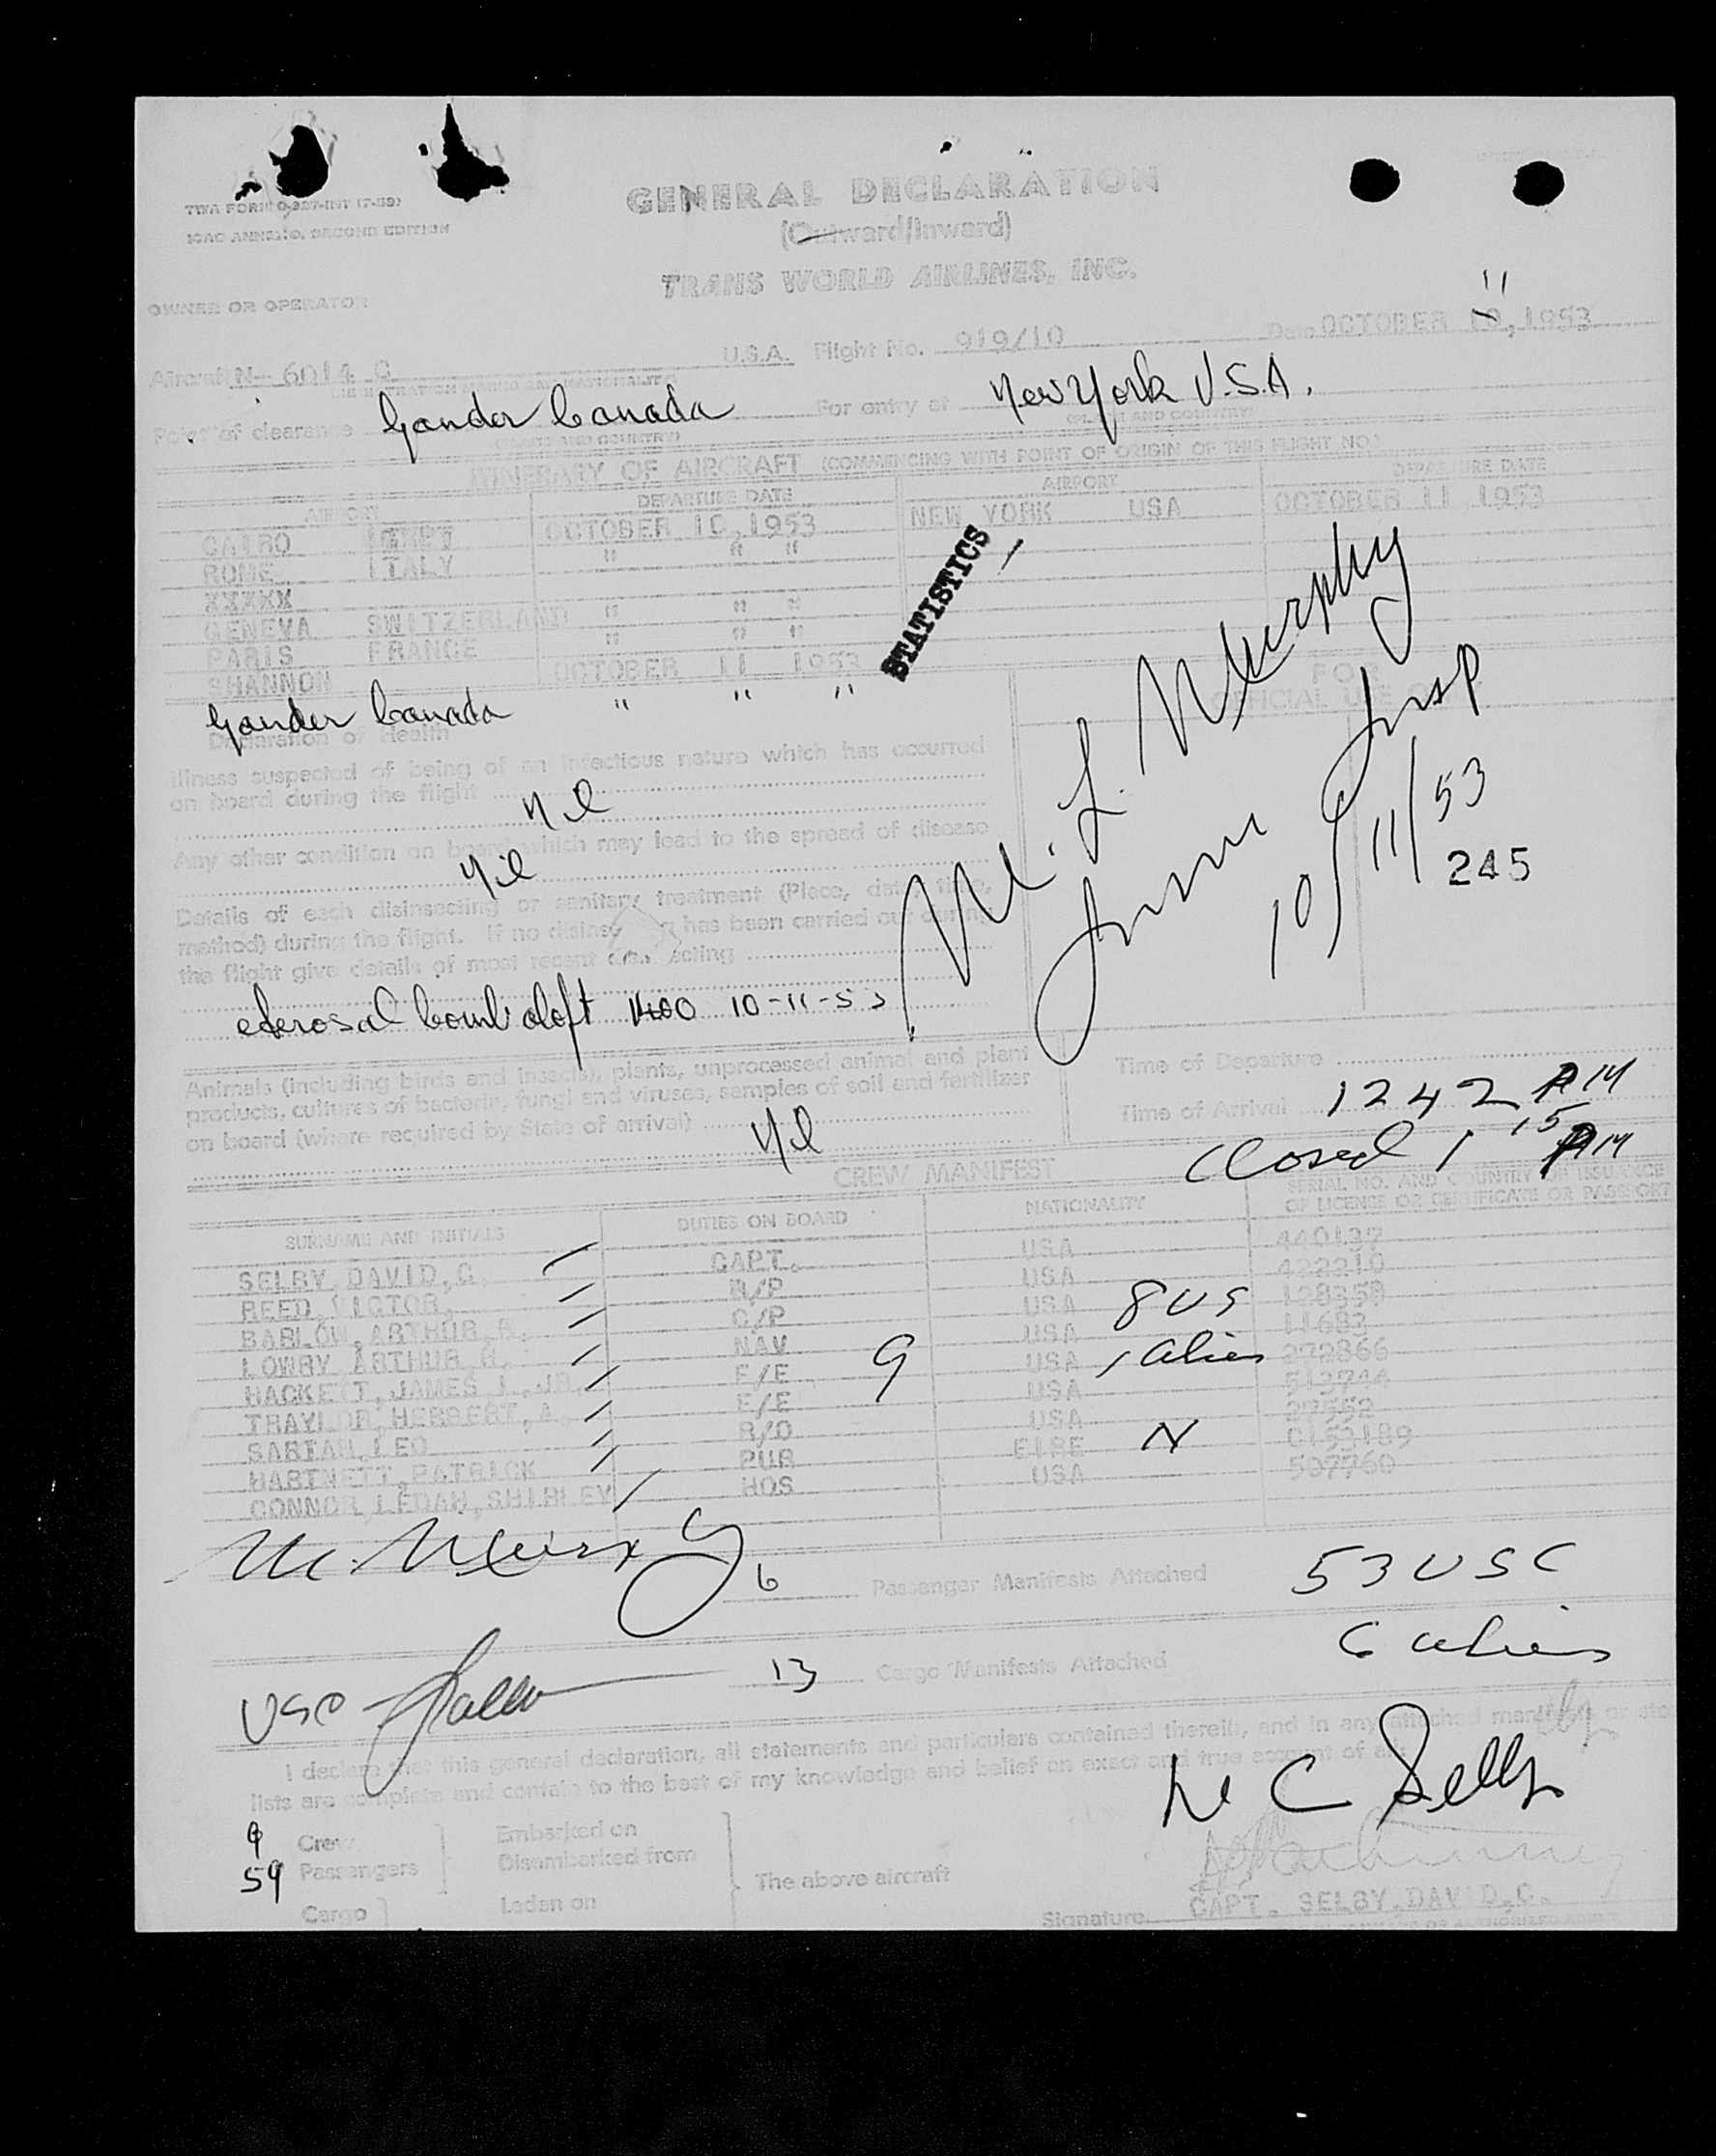 GENERAL DECLARATION
(Outward/Inward)
ICAO ANNEX 9, SECOND EDITION
TRANS WORLD AIRLINES, INC.
OWNER OR OPERATOR
11
Aircraft N- 6014 C U.S.A. Flight No. 919/10 Date OCTOBER 10, 1953
Point of clearance Gander Canada For entry at New York U.S.A.
(PLACE AND COUNTRY) (PLACE AND COUNTRY)
ITINERARY OF AIRCRAFT (COMMENCING WITH POINT OF ORIGIN OF THIS FLIGHT NO.)
AIRPORT DEPARTURE DATE AIRPORT DEPARTURE DATE
CAIRO EGYPT OCTOBER 10,1953 NEW YORK USA OCTOBER 11 1953
ROME ITALY " " "
XXXXX
GENEVA SWITZERLAND " " "
PARIS FRANCE " " "
SHANNON OCTOBER 11 1953
Gander Canada " " "
STATISTICS
FOR
OFFICIAL USE
Declaration of Health
Illness suspected of being of an infectious nature which has occurred
on board during the flight
Nil
Any other condition on board which may lead to the spread of disease
Nil
Details of each disinsecting or sanitary treatment (Place, date, time,
method) during the flight. If no disinsecting has been carried out during
the flight give details of most recent disinsecting
aerosal bomb aloft 1400 10-11-53
M. L. Murphy
Imm Insp
10/11/53
245
Animals (including birds and insects), plants, unprocessed animal and plant
products, cultures of bacteria, fungi and viruses, samples of soil and fertilizer
on board (where required by State of arrival)
Nil
Time of Departure
Time of Arrival 1242 PM
Closed 1 15 PM
CREW MANIFEST
SURNAME AND INITIALS DUTIES ON BOARD NATIONALITY SERIAL NO. AND COUNTRY OF ISSUANCE
OF LICENSE OR CERTIFICATE OR PASSPORT
SELBY, DAVID, C. CAPT. USA 440137
REED, VICTOR, USA 422210
BARLOW, ARTHUR, USA 128358
LOWRY ARTHUR NAV USA 11683
HACKETT, JAMES J., JR F/E USA 272866
TRAYLOR, HERBERT, A. F/E USA 513744
SARTAN, LEO R/O USA 27552
HARTNETT, PATRICK PUR EIRE N
CONNOR, LEDAH, SHIRLEY HOS USA 507760
9
8 US
1 alien
M. Murphy
6 Passenger Manifests Attached 53 USC
6 aliens
13 Cargo Manifests Attached
I declare that this general declaration, all statements and particulars contained therein, and in any attached manifests or
lists are complete and contain to the best of my knowledge and belief an exact and true account of all
D C Selby
9 Crew Embarked on
59 Passengers Disembarked from
The above aircraft
Cargo Laden on
Signature CAPT. SELBY, DAVID, C.